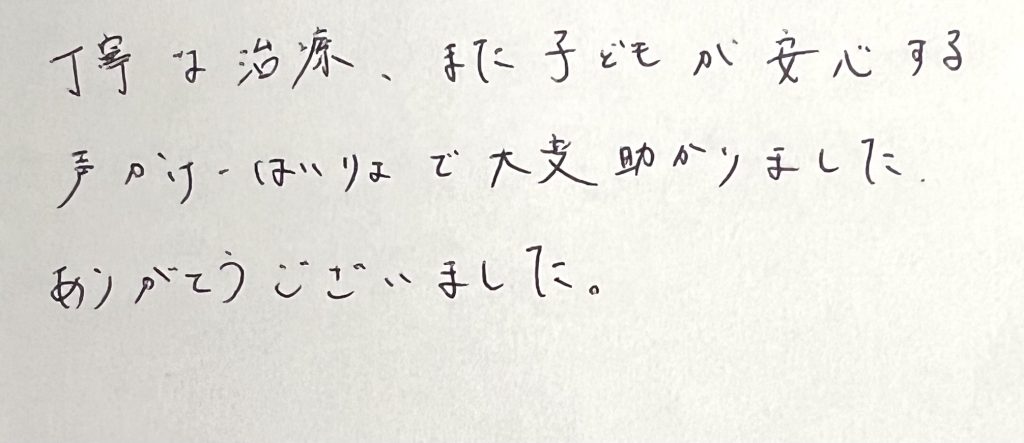 丁寧な治療、また子どもが安心する
声かけ・はいりょで大変助かりました.
ありがとうございました。